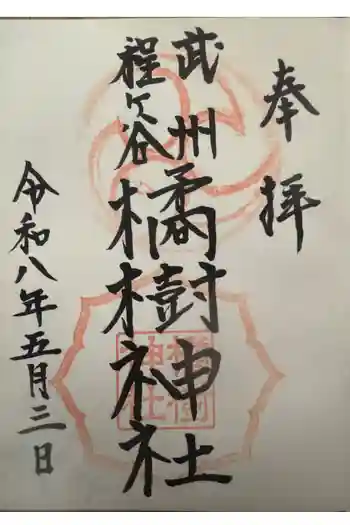 奉拝
武州
程ヶ谷
橘樹神社
令和八年五月三日
橘樹
神社